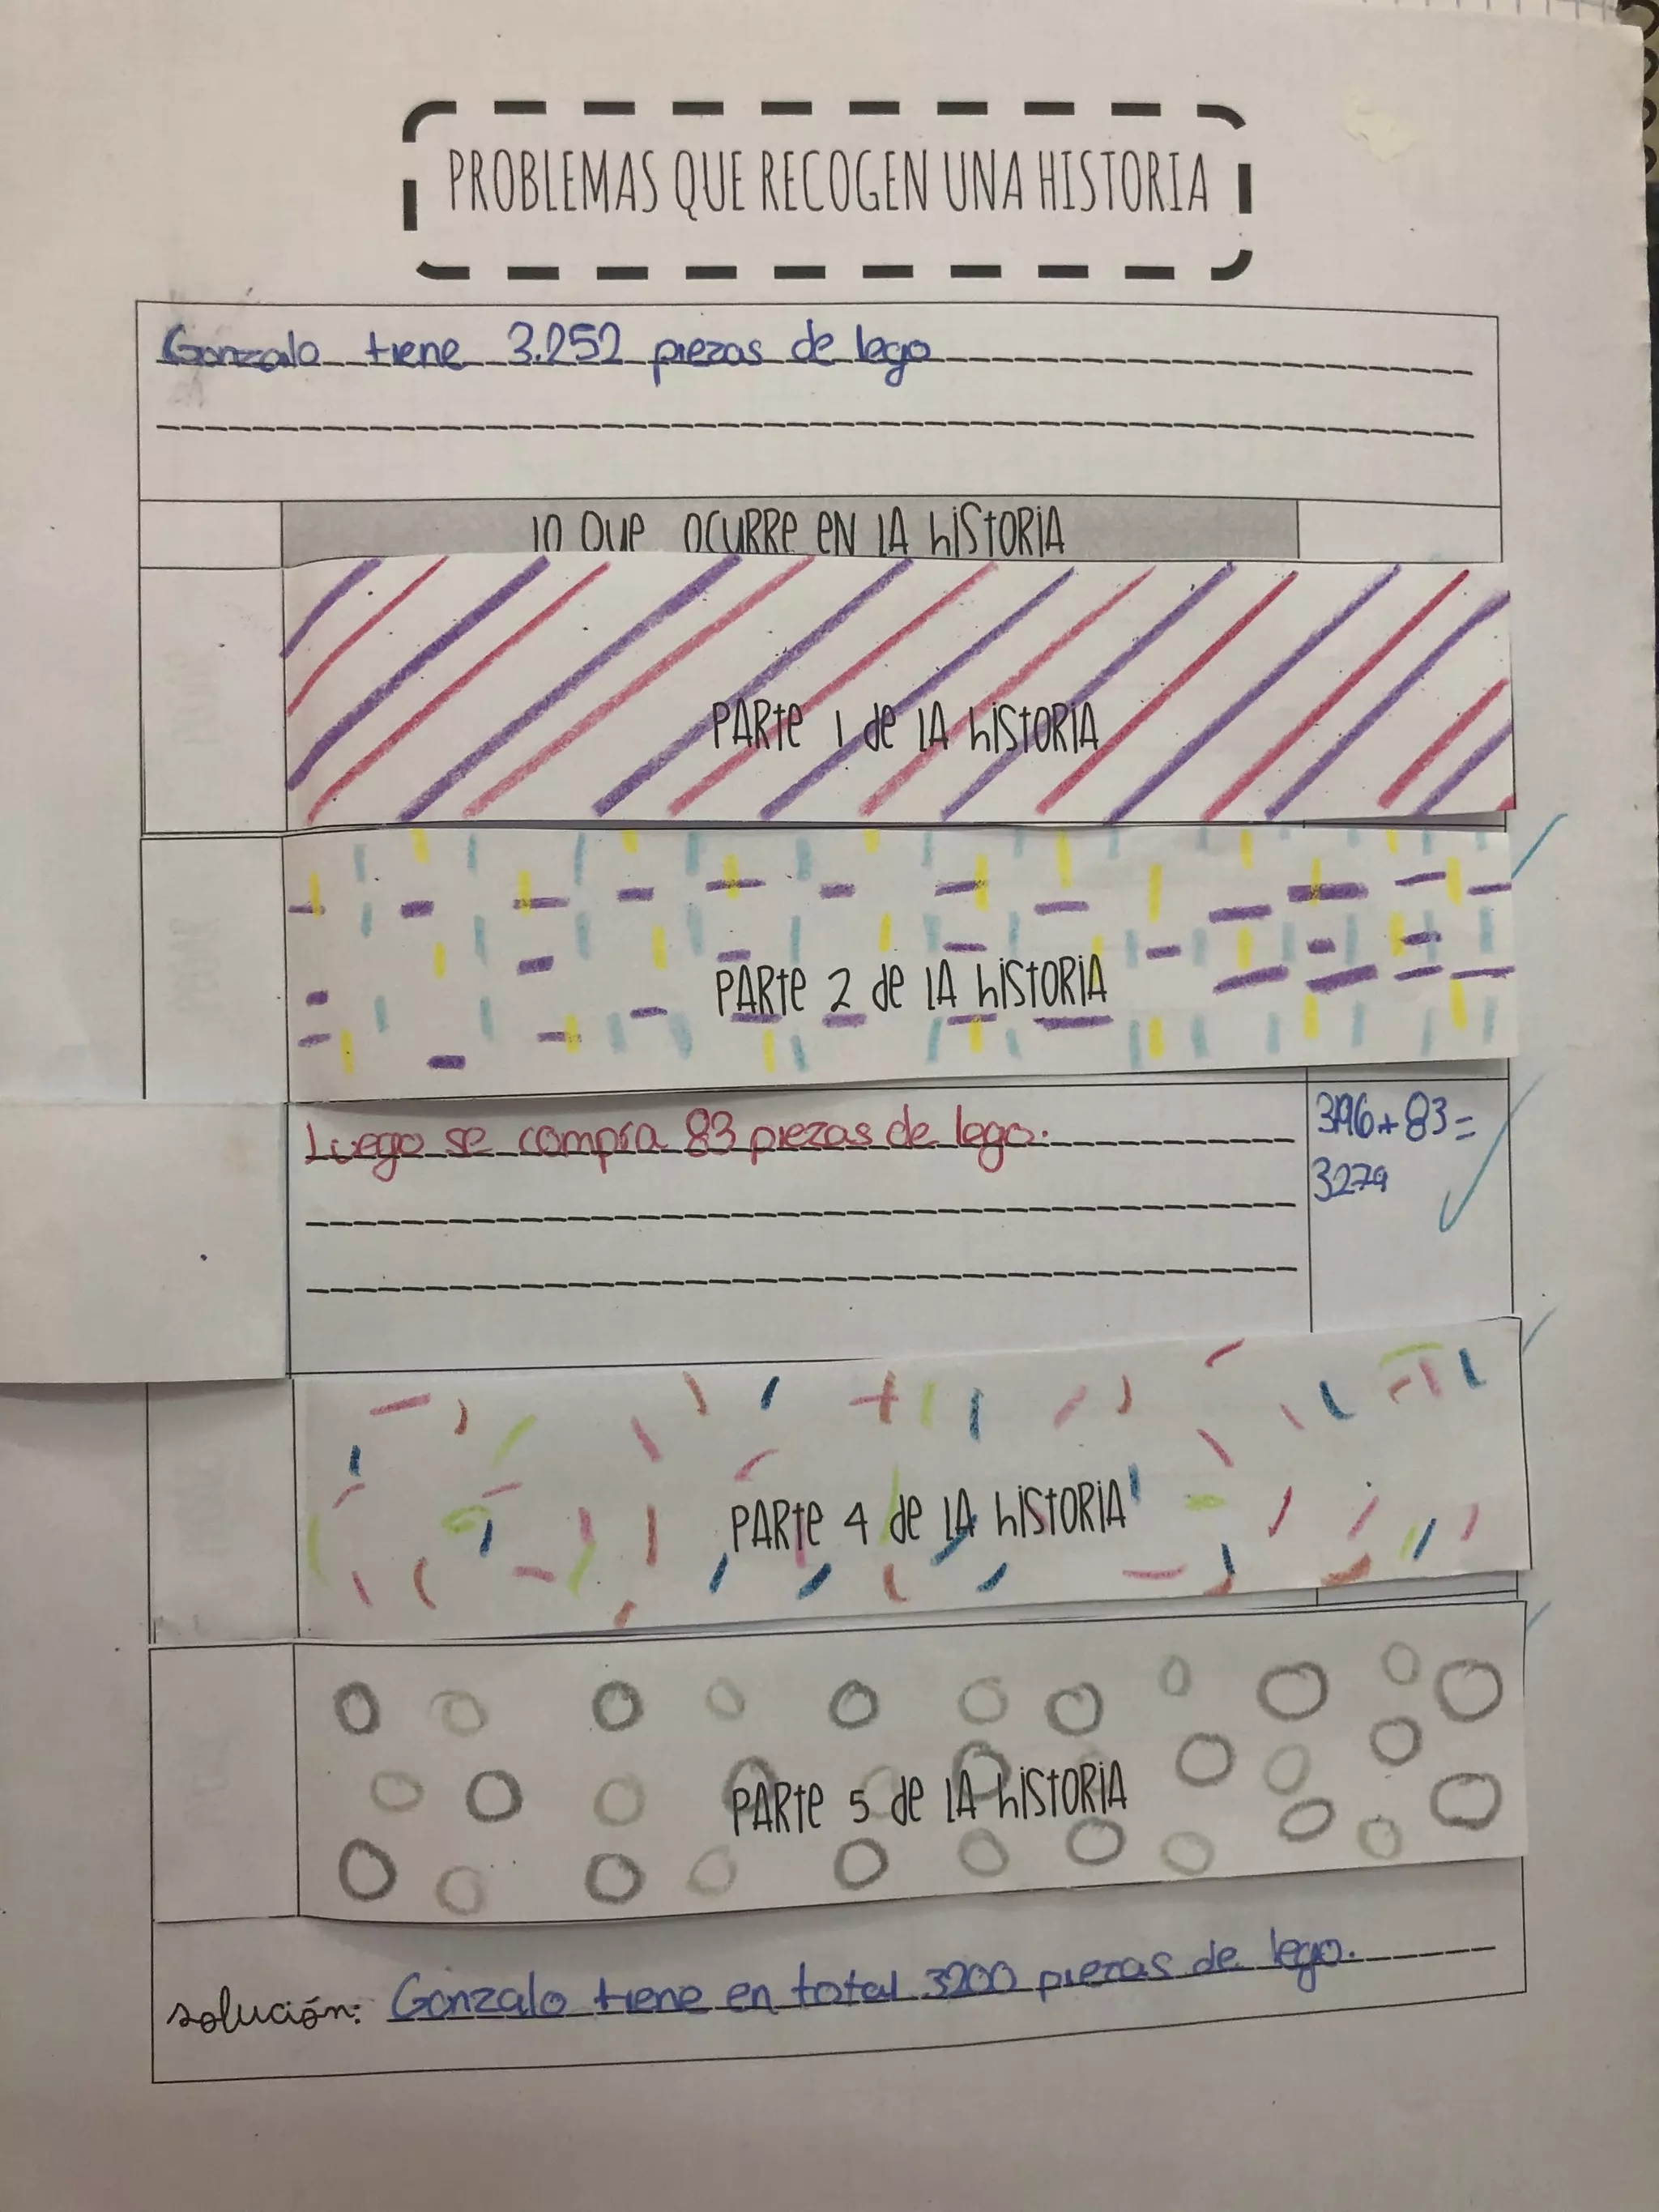 PROBLEMAS QUE RECOGEN UNA HISTORIA
Gonzalo tiene 3.252 piezas de lego
lo que ocurre en la historia
PARte 1 de LA hiStORiA
PARte 2 de LA hiStORiA
Luego se compra 83 piezas de lego.
3196+83=
3279
PARte 4 de LA hiStORiA
PARte 5 de LA hiStORiA
solución: Gonzalo tiene en total 3200 piezas de lego.